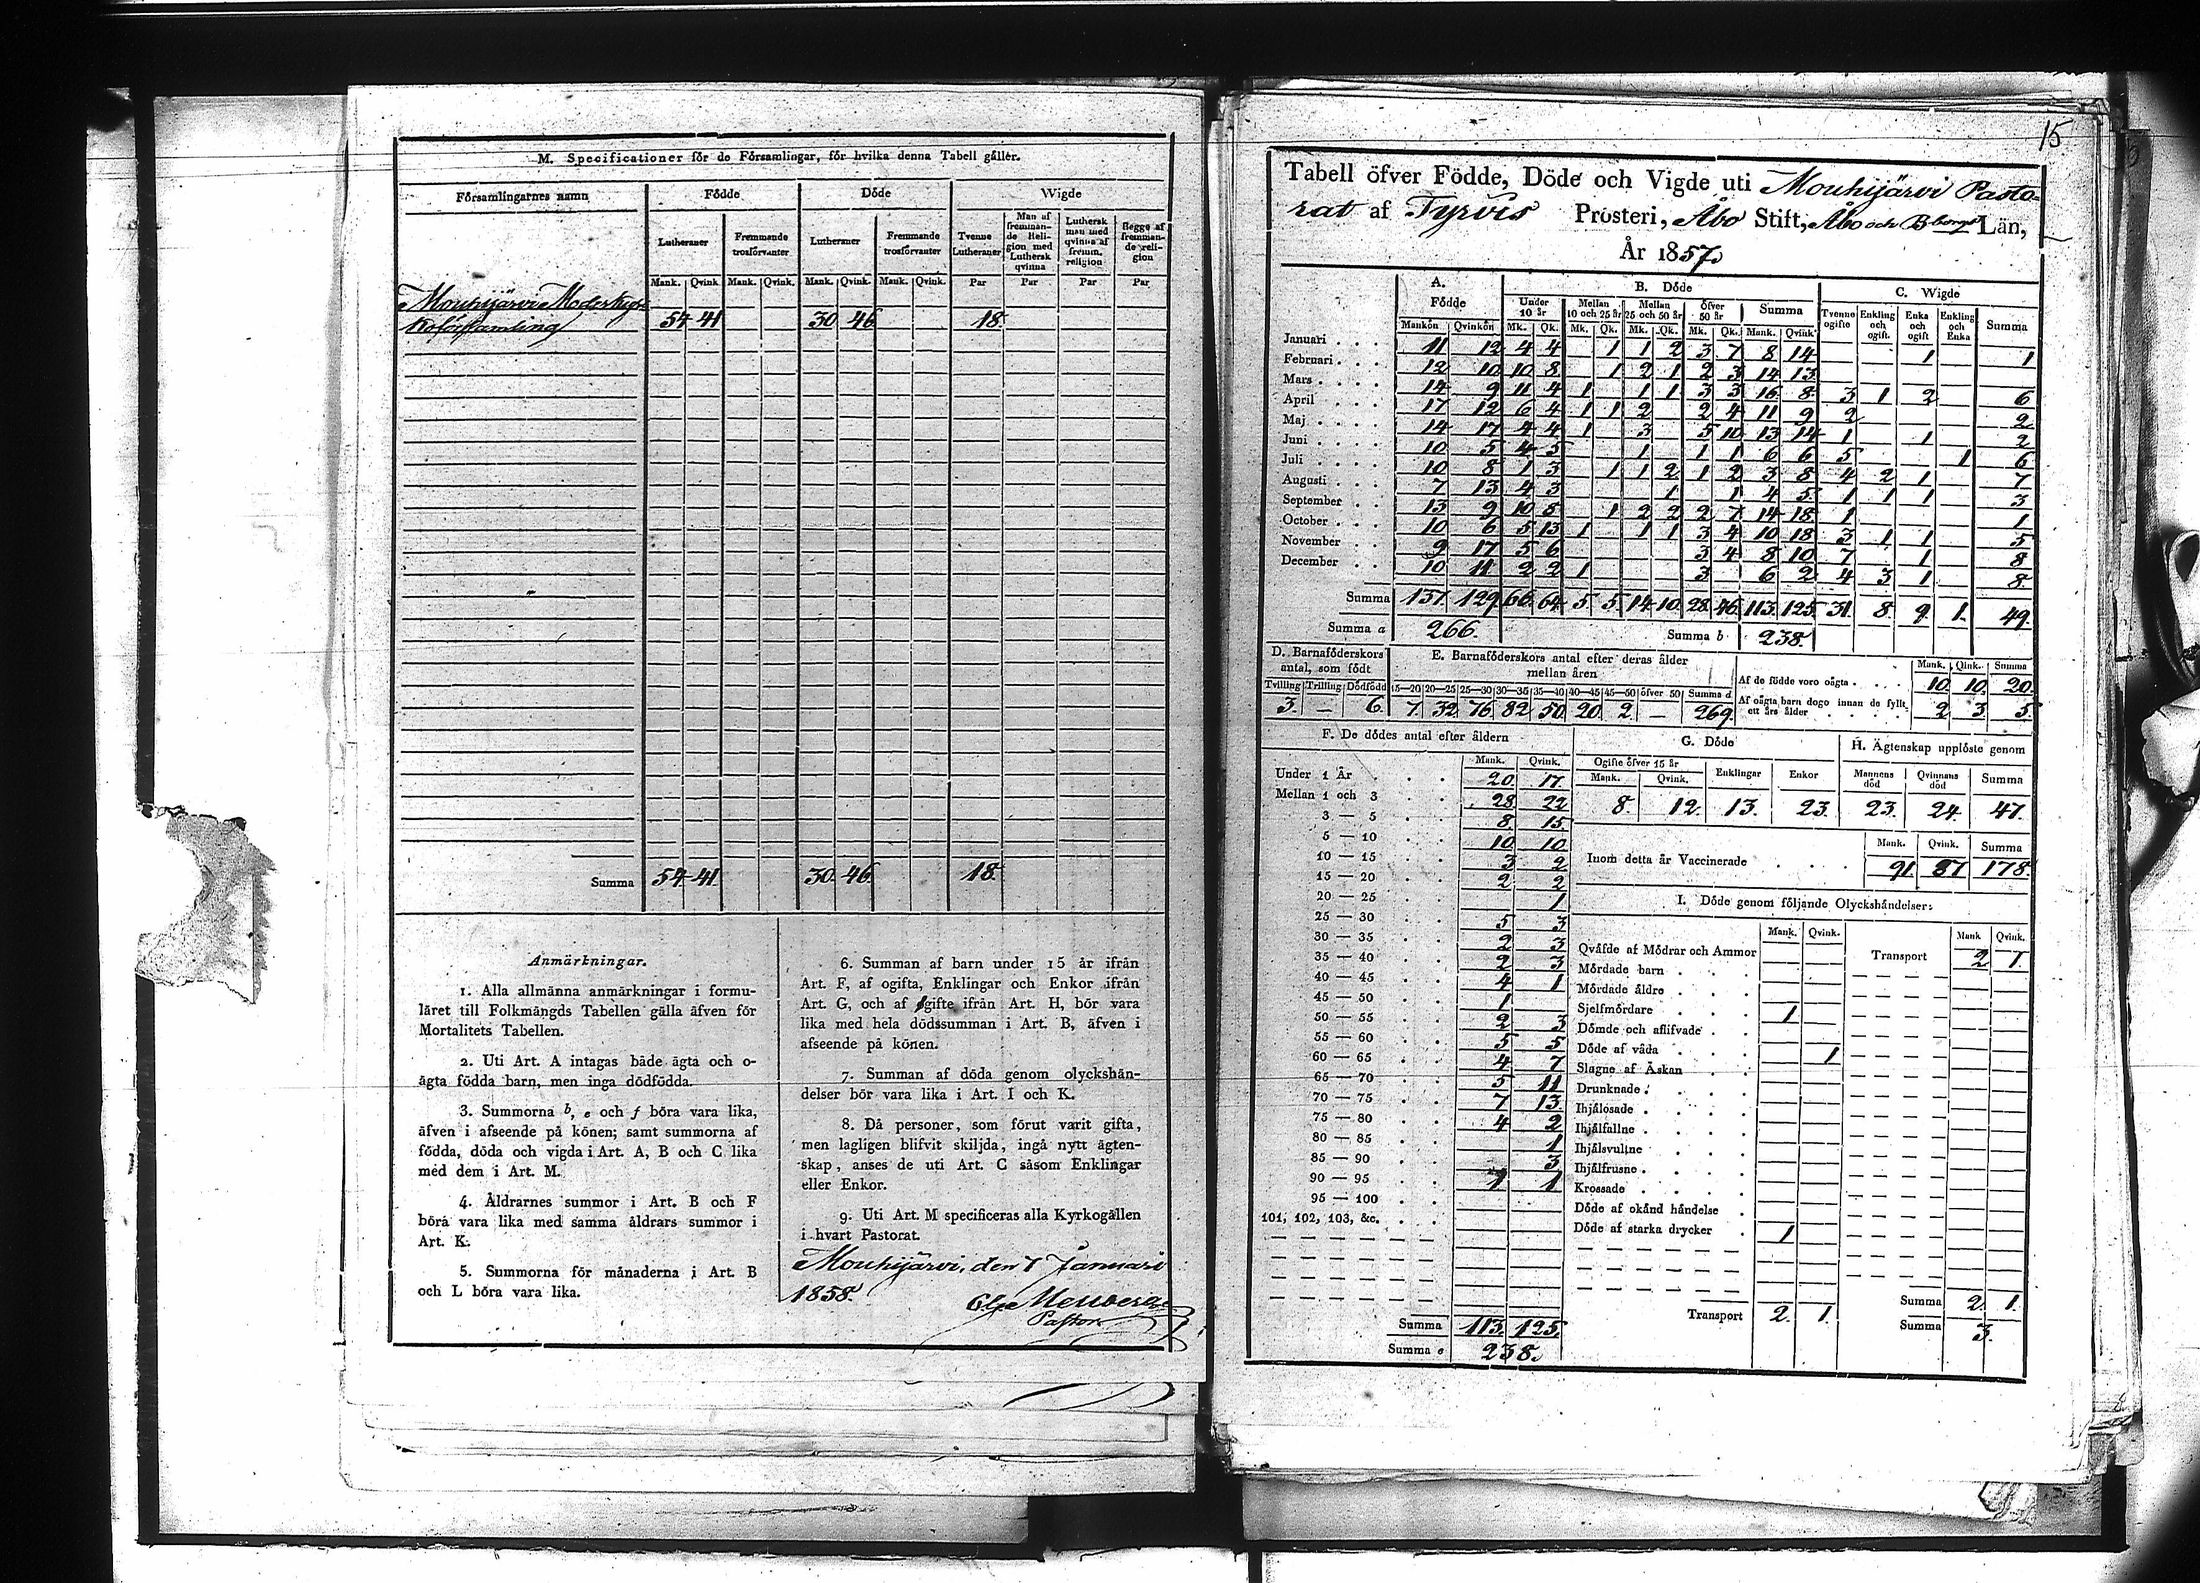 M. Specificationer för de Församlingar, för hvilka denna Tabell gäller.
Församlingarnes namn Födde Döde Wigde
Lutheraner Fremmande trosförvanter Lutheraner Fremmande trosförvanter Tvenne Lutheraner Man af fremmande Religion med Luthersk qvinna Luthersk man med qvinna af fremm. religion Begge af fremmande religion
Mank. Qvink Mank. Qvink. Mank. Qvink. Mank. Qvink. Par Par Par Par
Mouhijärvi Moderkyr-
koförsamling 54 41 30 46 18.
Summa 54 41 30. 46. 18.
Anmärkningar.
1. Alla allmänna anmärkningar i formu-
läret till Folkmängds Tabellen gälla äfven för
Mortalitets Tabellen.
2. Uti Art. A intagas både ägta och o-
ägta födda barn, men inga dödfödda.
3. Summorna b, e och f böra vara lika,
äfven i afseende på könen; samt summorna af
födda, döda och vigda i Art. A, B och C lika
med dem i Art. M.
4. Åldrarnes summor i Art. B och F
böra vara lika med samma åldrars summor i
Art. K.
5. Summorna för månaderna i Art. B
och L böra vara lika.
6. Summan af barn under 15 år ifrån
Art. F, af ogifta, Enklingar och Enkor ifrån
Art. G, och af gifte ifrån Art. H, bör vara
lika med hela dödssumman i Art. B, äfven i
afseende på könen.
7. Summan af döda genom olyckshän-
delser bör vara lika i Art. I och K.
8. Då personer, som förut varit gifta,
men lagligen blifvit skiljda, ingå nytt ägten-
skap, anses de uti Art. C såsom Enklingar
eller Enkor.
9. Uti Art. M specificeras alla Kyrkogällen
i hvart Pastorat.
Mouhijärvi, den 7 Januari
1858.
Pastor
15
Tabell öfver Födde, Döde och Vigde uti Mouhijärvi Pasto-
rat af Tyrvis Prosteri, Åbo Stift, Åbo och B:borgs Län,
År 1857.
A. Födde B. Döde C. Wigde
Under 10 år Mellan 10 och 25 år Mellan 25 och 50 år Öfver 50 år Summa Tvenne ogifte Enkling och ogift. Enka och ogift Enkling och Enka Summa
Mankön Qvinkön Mk. Qk. Mk. Qk. Mk. Qk. Mk. Qk. Mank. Qvink.
Januari 11 12 4 4 1 1 2 3 7 8 14 1 1
Februari 12 10 10 8 1 2 1 2 3 14 13
Mars 14 9 11 4 1 1 1 3 3 16 8 3 1 2 6
April 17 12 6 4 1 1 2 2 4 11 9 2 2
Maj 14 17 4 4 1 3 5 10 13 14 1 1 2
Juni 10 5 4 5 1 1 1 6 6 5 1 6
Juli 10 8 1 3 1 1 2 1 2 3 8 4 2 1 7
Augusti 7 13 4 3 1 1 4 5 1 1 1 3
September 13 9 10 8 1 2 2 2 7 14 18 1 1
October 10 6 5 13 1 1 1 3 4 10 18 3 1 1 5
November 9 17 5 6 3 4 8 10 7 1 8
December 10 11 2 2 1 3 6 2 4 3 1 8
Summa 137. 129. 66. 64. 5 5. 14. 10. 28. 46. 113. 125. 31. 8. 9. 1. 49.
Summa a 266. Summa b 238.
D. Barnaföderskors antal, som födt E. Barnaföderskors antal efter deras ålder mellan åren
Tvilling Trilling Dödfödd 15—20 20—25 25—30 30—35 35—40 40—45 45—50 öfver 50 Summa d
3. — 6. 7. 32. 76. 82. 50. 20. 2. — 269.
Mank. Qink. Summa
Af de födde voro oägta 10. 10. 20.
Af oägta barn dogo innan de fyllt ett års ålder 2 3 5.
F. De dödes antal efter åldern
Mank. Qvink.
Under 1 År 20 17.
Mellan 1 och 3 28 22
3 — 5 8. 15.
5 — 10 10 10
10 — 15 3 2
15 — 20 2 2
20 — 25 1
25 — 30 5 3
30 — 35 2 3
35 — 40 2 3
40 — 45 4 1
45 — 50 1
50 — 55 2 3
55 — 60 5 5
60 — 65 4 7
65 — 70 5 11
70 — 75 7 13
75 — 80 4 2
80 — 85 1
85 — 90 3
90 — 95 1 1
95 — 100
101, 102, 103, &c.
Summa 113. 125.
Summa e 238.
G. Döde
Ogifte öfver 15 år Enklingar Enkor
Mank. Qvink.
8. 12. 13. 23.
H. Ägtenskap upplöste genom
Mannens död Qvinnans död Summa
23. 24. 47.
Mank. Qvink. Summa
Inom detta år Vaccinerade 91. 87 178.
I. Döde genom följande Olyckshändelser:
Mank. Qvink. Mank Qvink.
Qväfde af Mödrar och Ammor Transport 2 1.
Mördade barn
Mördade äldre
Sjelfmördare 1
Dömde och aflifvade
Döde af våda 1
Slagne af Åskan
Drunknade
Ihjälösade
Ihjälfallne
Ihjälsvultne
Ihjälfrusne
Krossade
Döde af okänd händelse
Döde af starka drycker 1
Transport 2. 1. Summa 2. 1.
Summa 3.